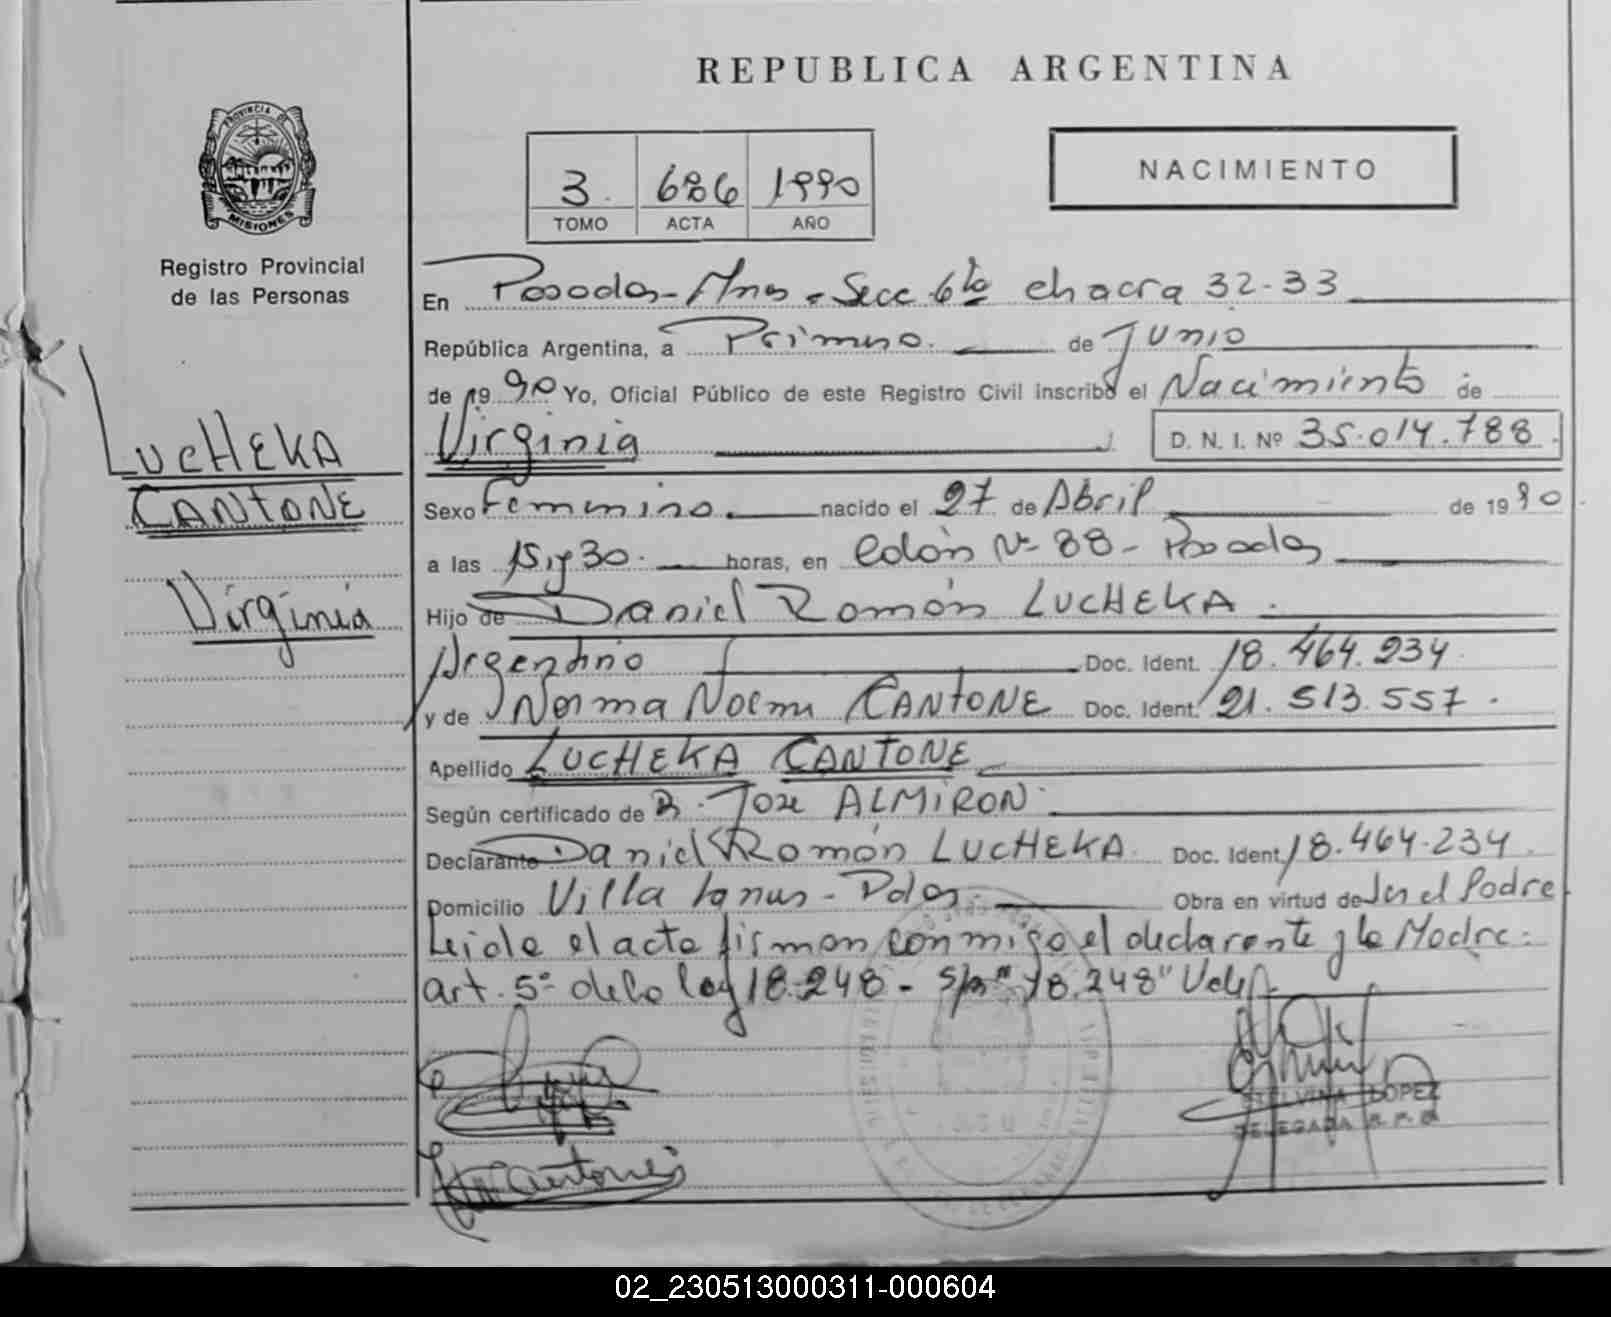 REPUBLICA ARGENTINA
PROVINCIA DE
MISIONES
Registro Provincial
de las Personas
3. 686 1990
TOMO ACTA AÑO
NACIMIENTO
LUCHEKA
CANTONE
Virginia
En Posadas - Mnes - Secc 6ta chacra 32-33
República Argentina, a Primero. de Junio
de 1990 Yo, Oficial Público de este Registro Civil inscribo el Nacimiento de
Virginia D. N. I. Nº 35.014.788
Sexo Femenino. nacido el 27 de Abril de 1990
a las 15 y 30. horas, en Colón Nº 88 - Posadas
Hijo de Daniel Román LUCHEKA.
Argentino Doc. Ident. 18.464.234
y de Norma Noemi CANTONE Doc. Ident. 21.513.557.
Apellido LUCHEKA CANTONE
Según certificado de Dr. Jose ALMIRON
Declarante Daniel Román LUCHEKA Doc. Ident. 18.464.234
Domicilio Villa Lanus - Pdas. Obra en virtud de Ser el Padre
Leida el acta firman conmigo el declarante y la Madre:
art. 5º de la ley 18.248 - S/R "18.248" Vale
LOPEZ
DELEGADA R. P. P.
02_230513000311-000604